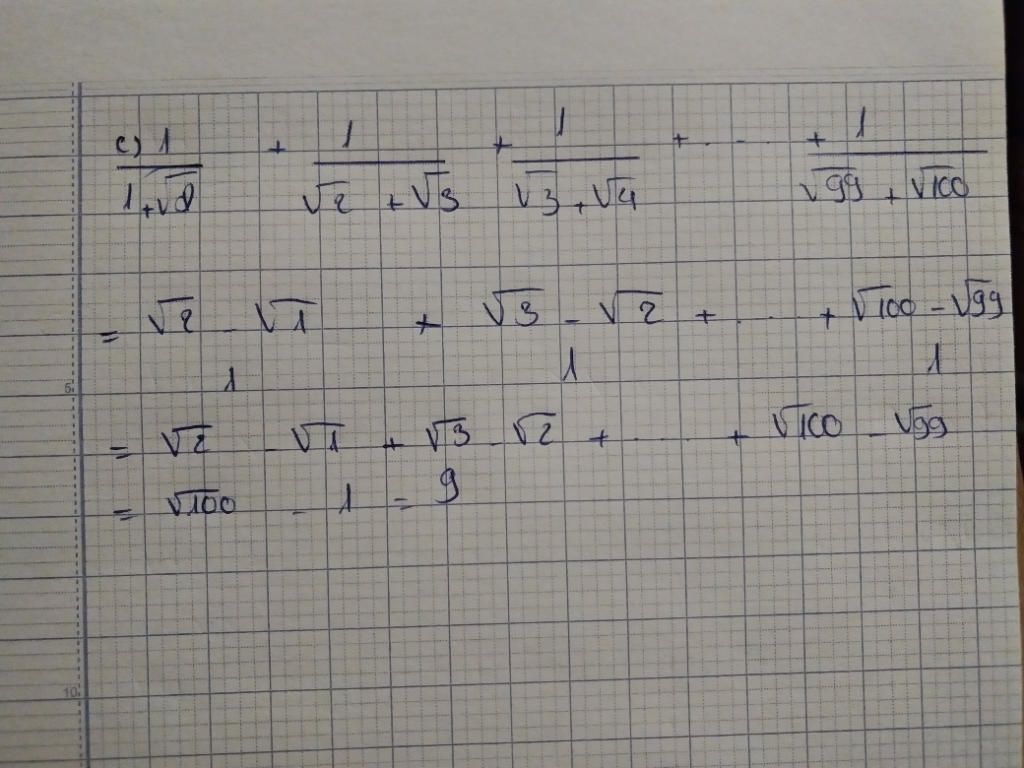 c) 1 + 1 + 1 + . . . + 1
1 + √ √2 + √3 √3 + √4 √99 + √100
= √2 - √1 + √3 - √2 + . . . + √100 - √99
1 1 1
5
= √2 - √1 + √3 - √2 + . . . . + √100 - √99
= √100 - 1 = 9
10